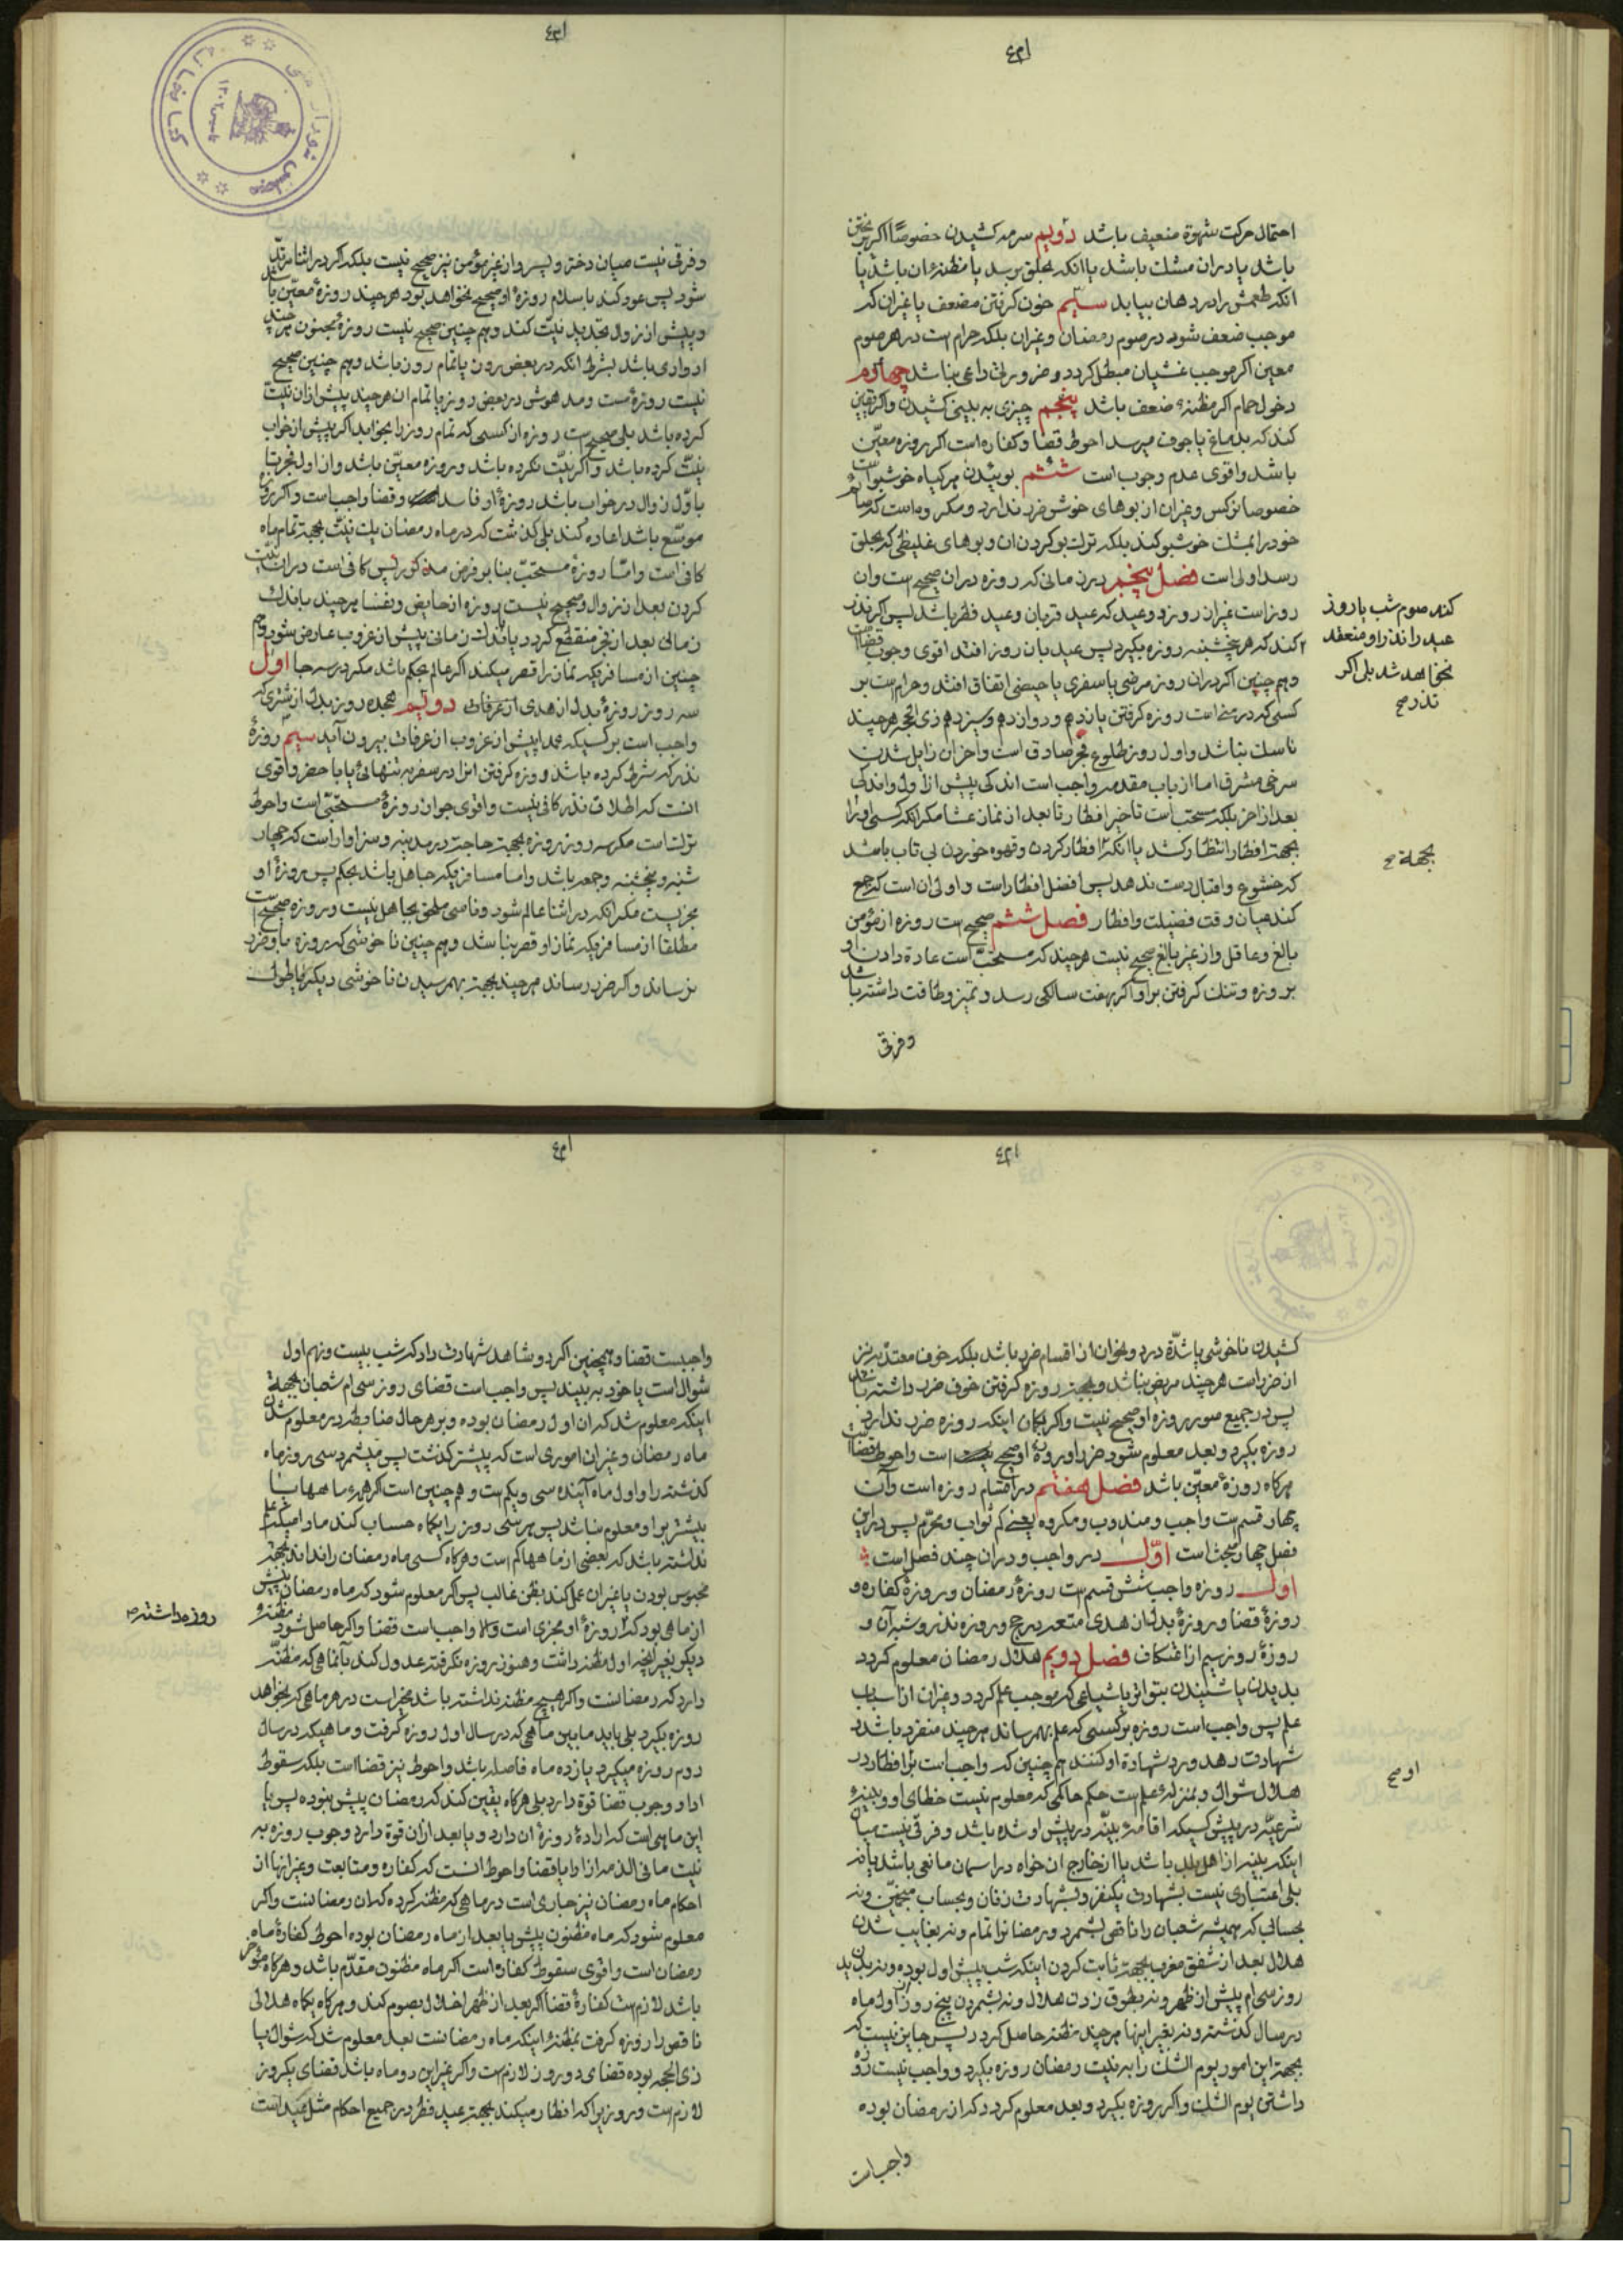 احتمال حرکت شهوة ضعیف باشد دویم سرمه کشیدن خصوصًا اکر
باشد یا دران مشک باشد یا انکه بحلق برسد یا مظنهٔ ان باشد یا
انکه طعمش را در دهان بیابد سیم خون کرفتن مضعف یا غیران که
موجب ضعف شود در صوم رمضان و غیران بلکه حرام است در هر صوم
معین اکر موجب غشیان مبطل کردد و ضرورتی داعی نباشد چهارم
دخول حمام اکر مظنهٔ ضعف باشد پنجم چیزی به بینی کشیدن و اکر یقین
کند که بدماغ یا جوف میرسد احوط قضا و کفاره است اکر روزه معیّن
باشد و اقوی عدم وجوب است ششم بوئیدن هر کیاه خوشبو است
خصوصا نرکس و غیران از بوهای خوش ضرر ندارد و مکروه است که
خود را بمشک خوشبو کند بلکه ترک بو کردن ان و بوهای غلیظی که بحلق
رسد اولی است فصل پنجم در زمانی که روزه دران صحیح است وان
روز است غیران روز دو عید که عید قربان و عید فطر باشد پس اکر نذر
کند که هر پنجشنبه روزه بکیرد پس عید بان روز افتد اقوی وجوب قضا است
کند صوم شب یا روز
عید را نذر او منعقد
نخواهد شد بلی اکر
نذر صح
و هم چنین اکر دران روز مرضی یا سفری یا حیضی اتفاق افتد و حرام است بر
کسی که در منی است روزه کرفتن یازدهم و دوازدهم و سیزدهم ذی الحجه هر چند
ناسک نباشد و اول روز طلوع فجر صادق است و اخران زایل شدن
سرخی مشرق اما از باب مقدمه واجب است اندکی پیش از اول و اندکی
بعد از اخر بلکه مستحب است تاخیر افطار تا بعد از نماز عشا مکر انکه کسی او را
بجهة افطار انتظار کشد یا انکه تا افطار کردن و قهوه خوردن بی تاب باشد
بجهة صح
که خشوع و اقبال دست ندهد پس افضل افطار است و اولی ان است که جمع
کند میان وقت فضیلت و افطار فصل ششم صحیح است روزه از مؤمن
بالغ و عاقل و از غیر بالغ صحیح نیست هر چند که مستحبّ است عادة دادن او
بروزه و تنک کرفتن بر او اکر بهفت سالکی رسد و تمیز و طاقت داشته باشد
وفرقی
وفرقی نیست میان دختر و پسر و از غیر مؤمن نیز صحیح نیست بلکه اکر در اثنا مرتدّ
شود پس عود کند باسلام روزهٔ او صحیح نخواهد بود هر چند روزهٔ معیّن باشد
و پیش از زوال تجدید نیّت کند و هم چنین صحیح نیست روزهٔ مجنون هر چند
ادواری باشد بشرط انکه در بعض روز یا تمام روز باشد و هم چنین صحیح
نیست روزهٔ مست و مدهوش در بعض روز یا تمام ان هر چند پیش از ان نیّت
کرده باشد بلی صحیح است روزه از کسی که تمام روز را بخوابد اکر پیش از خواب
نیّت کرده باشد و اکر نیّت نکرده باشد و روزه معیّن باشد و از اول فجر تا
باوّل زوال در خواب باشد روزهٔ او فاسد و قضا واجب است و اکر
موسّع باشد اعاده کند بلی کذشت که در ماه رمضان یک نیّت بجهة تمام ماه
کافی است و امّا روزهٔ مستحبّ بنا بر فرض مذکور پس کافی است دران نیّت
کردن بعد از زوال و صحیح نیست روزه از حایض و نفسا هر چند باندک
زمانی بعد از فجر منقطع کردد یا باندک زمانی پیش از غروب عارض شود و هم
چنین از مسافریکه نماز را قصر میکند اکر عالم بحکم باشد مکر در سه جا اوّل
سه روز روزهٔ بدل از هدی از عرفات دویّم هجده روز بدل از شتری که
واجب است بر کسیکه عمدا پیش از غروب از عرفات بیرون آید سیّم روزهٔ
نذر که شرط کرده باشد روزه کرفتن انرا در سفر به تنهائی یا با حضر و اقوی
انست که اطلاق نذر کافی نیست و اقوی جواز روزهٔ مستحبّی است و احوط
ترک است مکر سه روز روزه بجهت حاجت در مدینه و سزاوار است که چهار
شنبه و پنجشنبه و جمعه باشد و اما مسافریکه جاهل باشد بحکم پس روزهٔ او
مجزیست مکر انکه در اثنا عالم شود و ناسی ملحق بجاهل نیست و روزه صحیح است
مطلقا از مسافریکه نماز او قصر نباشد و هم چنین ناخوشی که روزه باو ضرر
نرساند و اکر ضرر رساند هر چند بجهة بهمرسیدن ناخوشی دیکر یا طول
کشیدن ناخوشی یا شدّة درد و نحو ان از اقسام ضرر باشد بلکه خوف معتدّ به نیز
از ضرر است هر چند مریض نباشد و بجهة روزه کرفتن خوف ضرر داشته باشد
پس در جمیع صور روزه او صحیح نیست و اکر بکمان اینکه روزه ضرر ندارد
روزه بکیرد و بعد معلوم شود ضرر او روزهٔ او صحیح است و احوط قضا است
هرکاه روزهٔ معیّن باشد فصل هفتم در اقسام روزه است و آن
چهار قسم است واجب و مندوب و مکروه یعنی کم ثواب و محرّم پس در این
فصل چهار مبحث است اوّل در واجب و دران چند فصل است
اول روزه واجب شش قسم است روزهٔ رمضان و روزهٔ کفاره و
روزهٔ قضا و روزهٔ بدل از هدی متعه در حج و روزه نذر و شبه آن و
روزهٔ روز سیم از اعتکاف فصل دویم هلال رمضان معلوم کردد
بدیدن یا شنیدن بتواتر یا شیاعی که موجب علم کردد و غیران از اسباب
علم پس واجب است روزه بر کسی که علم بهمرساند هر چند منفرد باشد و
شهادت دهد و رد شهادة او کنند هم چنین که واجب است بر او افطار در
هلال شوال و بمنزلهٔ علم است حکم حاکمی که معلوم نیست خطای او و بینهٔ
او صح
شرعیّه در پیش کسیکه اقامهٔ بیّنه در پیش او شده باشد و فرقی نیست میان
اینکه بینه از اهل بلد باشد یا از خارج ان خواه در اسمان مانعی باشد یا نه
بلی اعتباری نیست بشهادت یکنفر و بشهادت زنان و بحساب منجمّین و نه
بحسابی که همیشه شعبان را ناقص بشمرد و رمضان را تمام و نه بغایب شدن
هلال بعد از شفق مغرب بجهة ثابت کردن اینکه شب پیش اول بوده و نه بدیدن
روز سی ام پیش از ظهر و نه بطوق زدن هلال و نه بشمردن پنج روز از اول ماه
در سال کذشته و نه بغیر اینها هر چند مظنه حاصل کردد پس جایز نیست که
بجهة این امور یوم الشک را به نیت رمضان روزه بکیرد و واجب نیست روزه
داشتن یوم الشک و اکر روزه بکیرد و بعد معلوم کردد که از رمضان بوده
واجب است
واجبست قضا و همچنین اکر دو شاهد شهادت داد که شب بیست و نهم اول
شوال است یا خود به بیند پس واجب است قضای روز سی ام شعبان بجهة
اینکه معلوم شد که ان اول رمضان بوده و بر هر حال مناط در معلوم شدن
ماه رمضان و غیران اموری است که پیشتر کذشت پس میشمرد سی روز ماه
کذشته را و اول ماه آینده سی و یکم است و هم چنین است اکر همهٔ ماهها یا
بیشتر بر او معلوم نباشد پس هر سی روز را یکماه حساب کند مادامیکه علم
نداشته باشد که بعضی از ماهها کم است و هرکاه کسی ماه رمضان را نداند بجهة
محبوس بودن یا غیران عمل کند بظن غالب پس اکر معلوم شود که ماه رمضان پیش
از ماهی بود که روزهٔ او مجزی است و الا واجب است قضا و اکر حاصل شود مظنهٔ
روزه داشته صح
دیکر بغیر انچه اول مظنه داشت و هنوز روزه نکرفته عدول کند بآنماهی که مظنّه
دارد که رمضانست و اکر هیچ مظنه نداشته باشد مخیر است در هر ماهی که بخواهد
روزه بکیرد بلی باید مابین ماهی که در سال اول روزه کرفت و ماهیکه در سال
دوم روزه میکیرد یازده ماه فاصله باشد و احوط نیز قضا است بلکه سقوط
ادا و وجوب قضا قوة دارد بلی هرکاه یقین کند که رمضان پیش نبوده پس یا
این ماهی است که ارادهٔ روزهٔ ان دارد و یا بعد از ان قوة دارد وجوب روزه به
نیت ما فی الذمه از ادا یا قضا و احوط انست که کفاره و متابعت و غیر اینها از
احکام ماه رمضان نیز جاری است در ماهی که مظنه کرده که ان رمضانست و اکر
معلوم شود که ماه مظنون پیش یا بعد از ماه رمضان بوده احوط کفارهٔ ماه
رمضان است و اقوی سقوط کفاره است اکر ماه مظنون مقدّم باشد و هرکاه مؤخر
باشد لازم است کفارهٔ قضا اکر بعد از ظهر اخلال بصوم کند و هرکاه یکماه هلالی
ناقص را روزه کرفت بمظنهٔ اینکه ماه رمضانست بعد معلوم شد که شوال یا
ذی الحجه بوده قضای دو روز لازم است و اکر غیر این دو ماه باشد قضای یکروز
لازم است و روزیرا که افطار میکند بجهة عید فطر در جمیع احکام مثل عید است